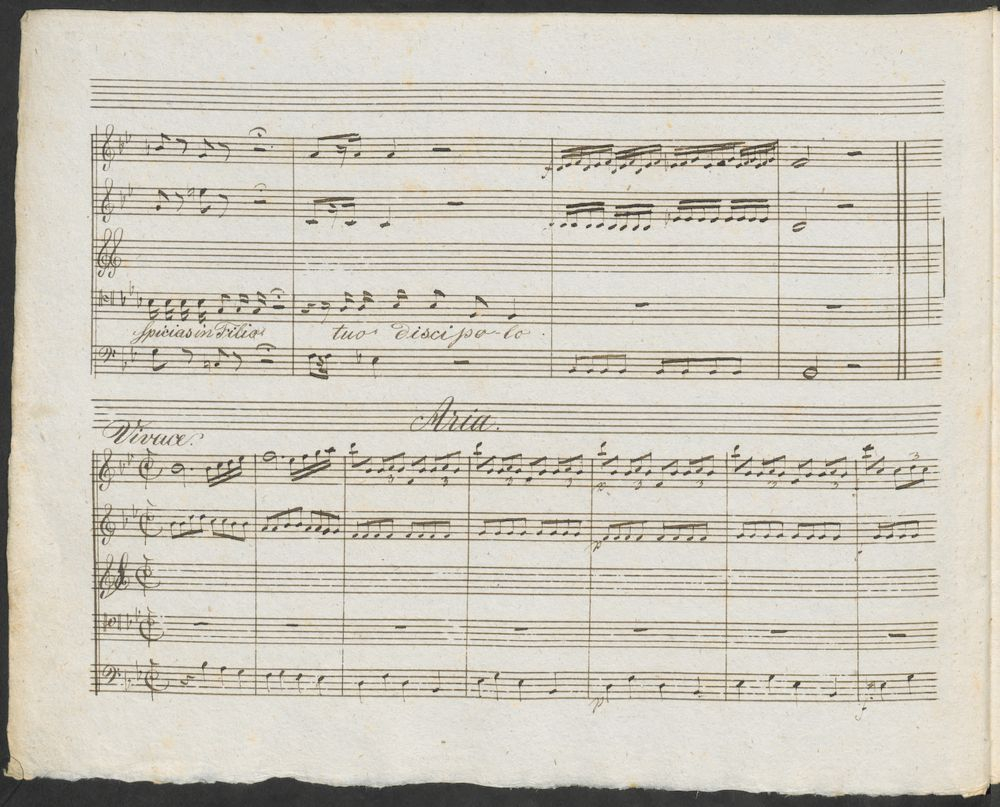 spicias in Filio tuo discipo-lo.
Aria.
Vivace.